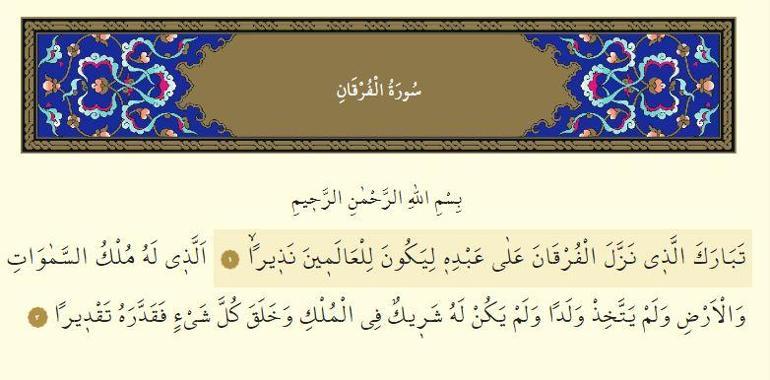 سُورَةُ الْفُرْقَانِ
بِسْمِ اللّٰهِ الرَّحْمٰنِ الرَّح۪يمِ
تَبَارَكَ الَّذ۪ي نَزَّلَ الْفُرْقَانَ عَلٰى عَبْدِه۪ لِيَكُونَ لِلْعَالَم۪ينَ نَذ۪يرًاۙ ١ اَلَّذ۪ي لَهُ مُلْكُ السَّمٰوَاتِ
وَالْاَرْضِ وَلَمْ يَتَّخِذْ وَلَدًا وَلَمْ يَكُنْ لَهُ شَر۪يكٌ فِي الْمُلْكِ وَخَلَقَ كُلَّ شَيْءٍ فَقَدَّرَهُ تَقْد۪يرًا ٢